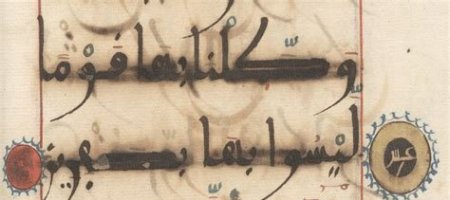 وَكَّلْنَا بِهَا قَوْمًا
لَّيْسُوا بِهَا بِكَٰفِرِينَ
عشر